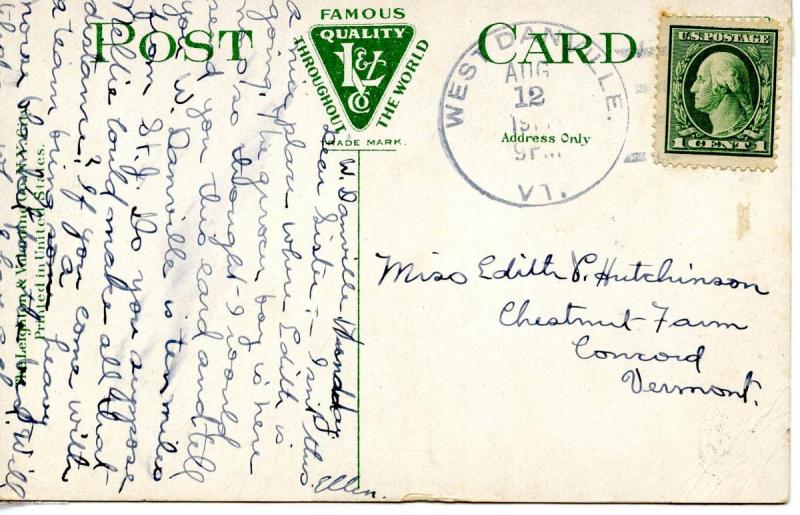 POST CARD
FAMOUS
QUALITY
L&V
CO
THROUGHOUT
THE WORLD
TRADE MARK.
Address Only
WEST DANVILLE.
AUG
12
9PM
VT.
U.S. POSTAGE
1 CENT 1
Miss Edith P. Hutchinson
Chestnut Farm
Concord
Vermont.
W. Danville
Dear Sister:- Isn't this
a nice place where Edith is
going? The grocer boy is here
now so thought I would
send you this card and tell
you W. Danville is ten miles
from St. J. Do you suppose
Nellie could make all that
distance? If you come with
a team, bring a heavy
Will
Ellen.
Printed in United States.